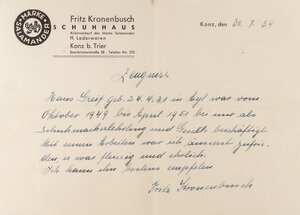 MARKE
SALAMANDER
Fritz Kronenbusch
SCHUHHAUS
Alleinverkauf der Marke Salamander
ff. Lederwaren
Konz b. Trier
Saarbrückerstraße 38 - Telefon Nr. 375
Konz, den 30. 7. 54
Zeugnis
Hans Greif geb. 24.4.31 in Zyl war vom
Oktober 1949 bis April 1951 bei mir als
Schuhmacherlehrling und Geselle beschäftigt
Mit seinen Arbeiten war ich äusserst zufrie-
den, er war fleissig und ehrlich.
Ich kann ihn bestens empfelen
Fritz Kronenbusch